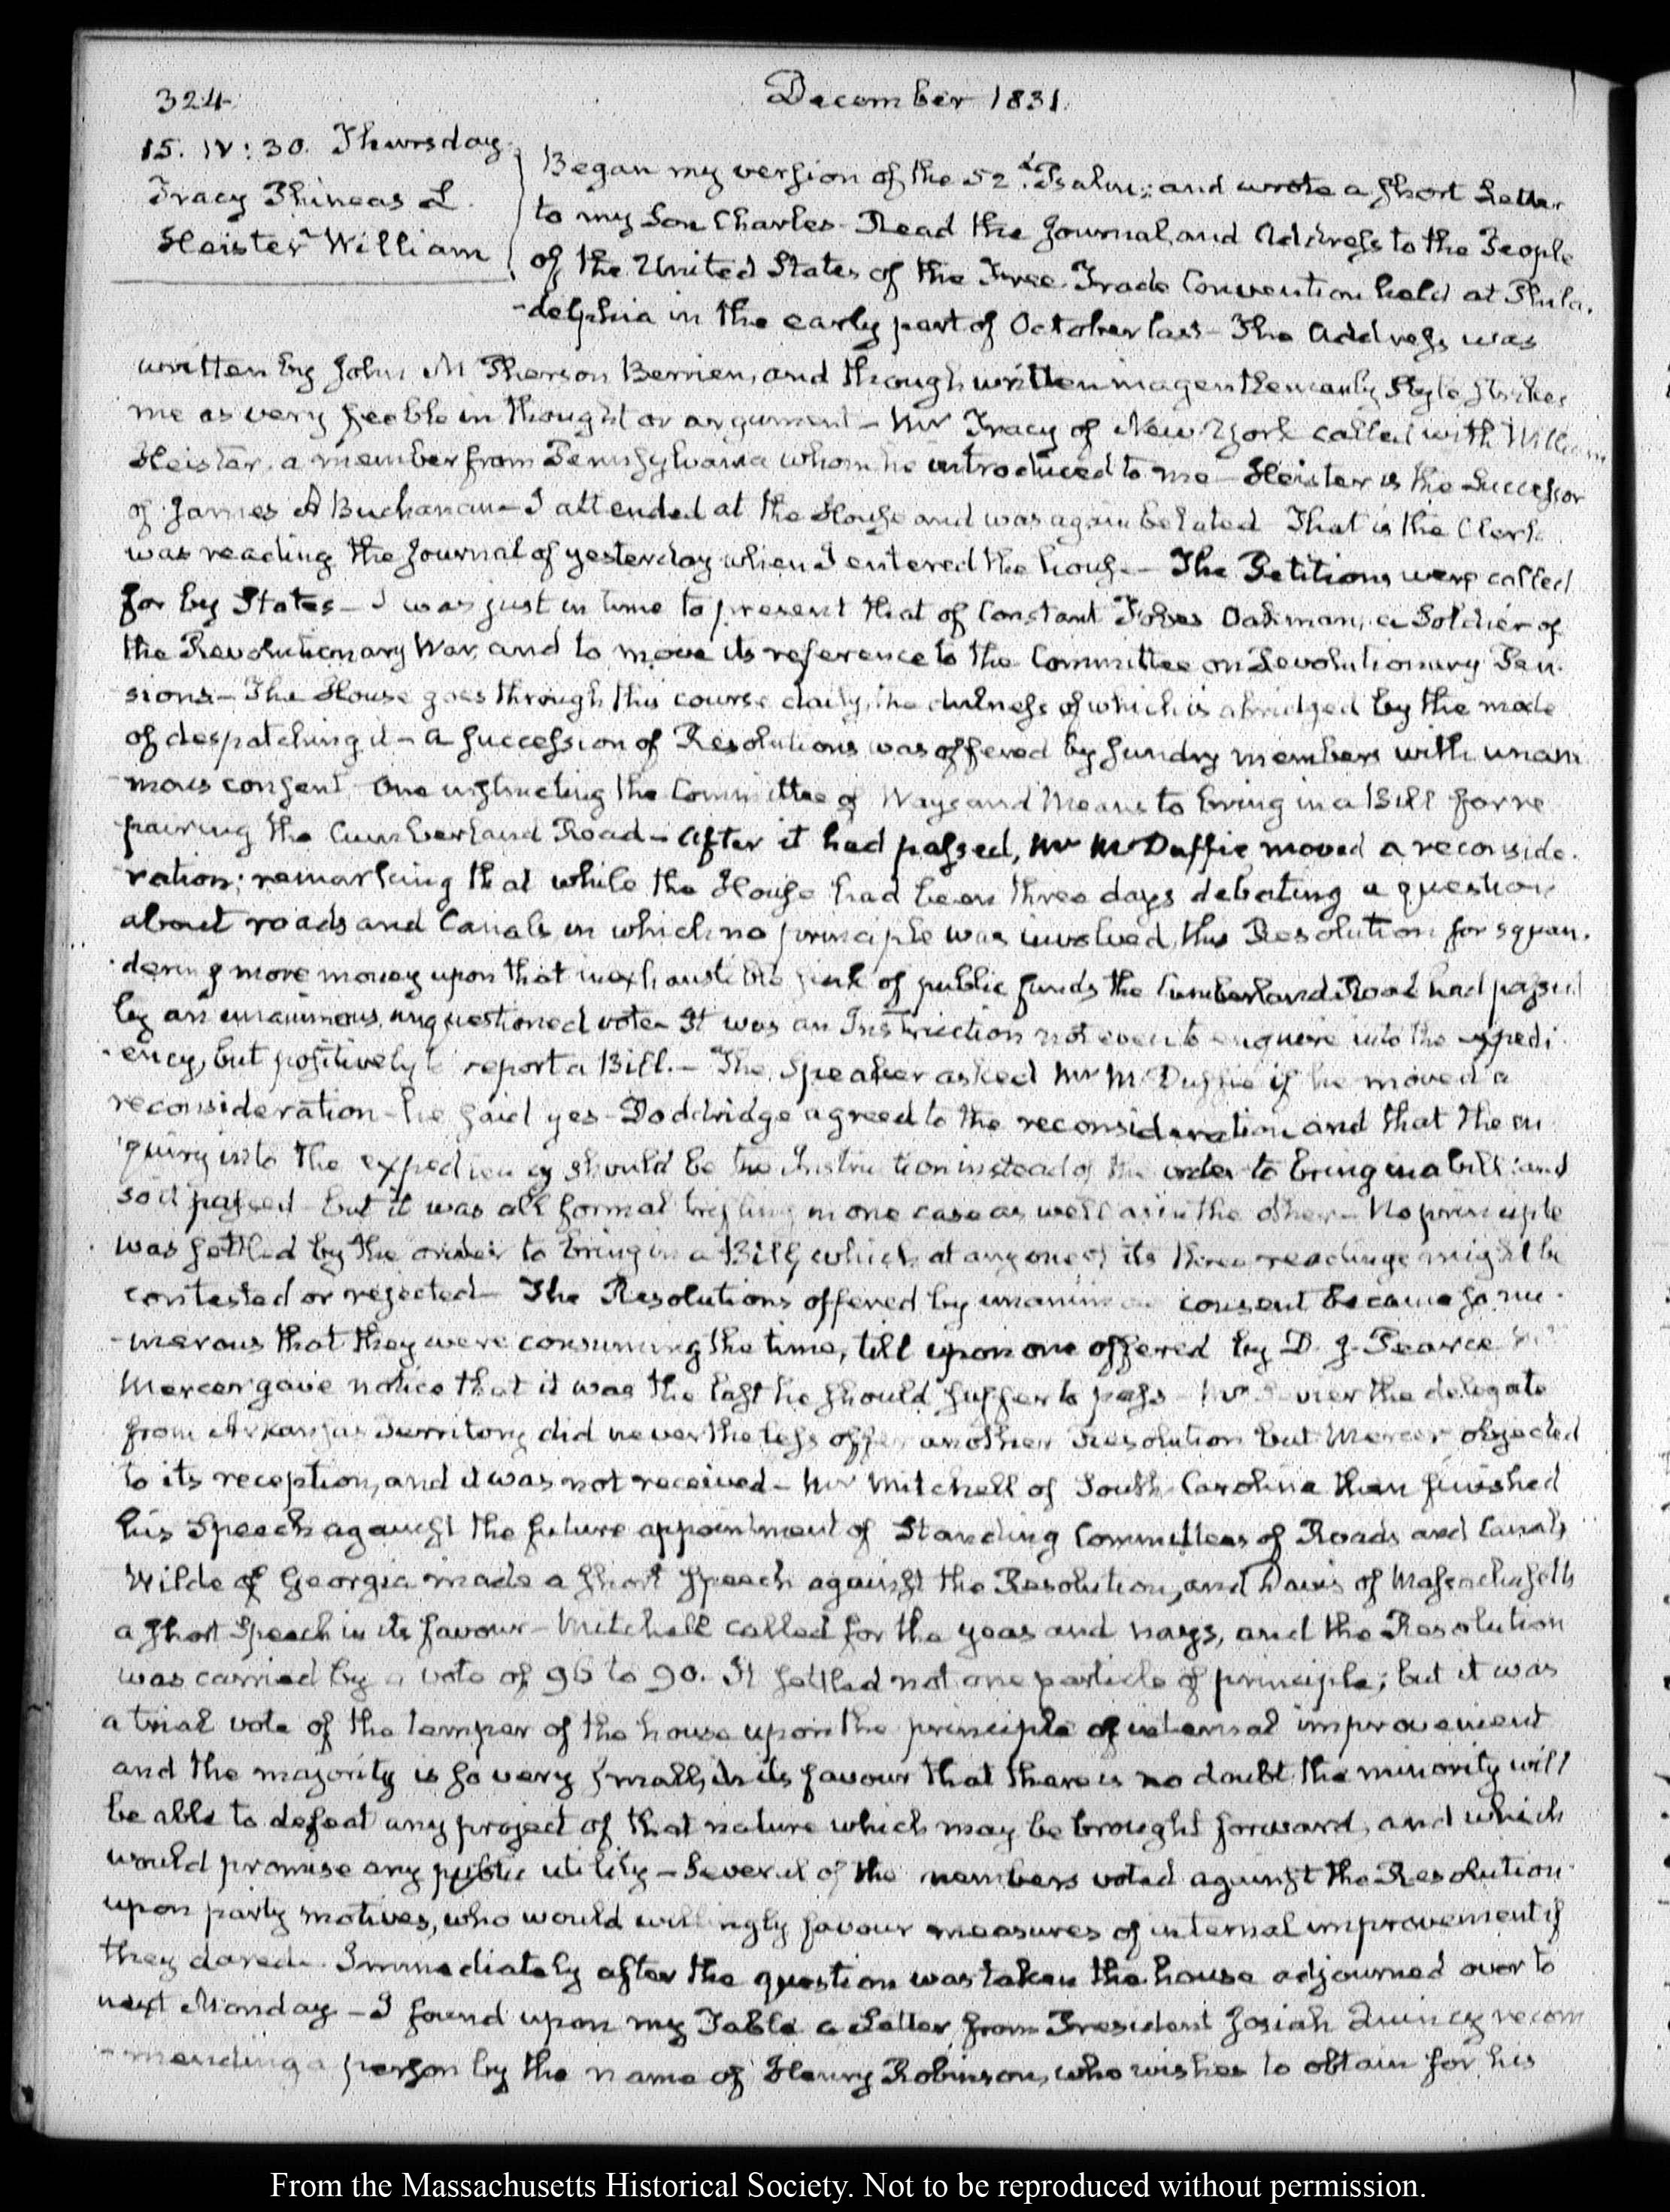 324.
December 1831.
15. IV:30. Thursday.
Tracy Phineas L.
Heister William
Began my version of the 52d. Psalm; and wrote a short Letter
to my Son Charles. Read the Journal, and Address to the People
of the United States of the Free Trade Convention held at Phila-
-delphia in the early part of October last — The Address was
written by John McPherson Berrien, and though written in a gentlemanly Style strikes
me as very feeble in thought or argument — Mr Tracy of New-York called with William
Heister, a member from Pennsylvania whom he introduced to me — Heister is the Successor
of James A Buchanan — I attended at the House and was again belated That is the Clerk
was reading the Journal of yesterday when I entered the house — The Petitions were called
for by States — I was just in time to present that of Constant Fobes Oakman, a Soldier of
the Revolutionary War, and to move its reference to the Committee on Revolutionary Pen-
sions — The House goes through this course daily, the dulness of which is abridged by the mode
of despatching it — A succession of Resolutions was offered by sundry members with unani
mous consent One instructing the Committee of Ways and Means to bring in a Bill for re
pairing the Cumberland Road — After it had passed, Mr McDuffie moved a reconside-
ration; remarking that while the House had been three days debating a question
about roads and Canals in which no principle was involved, this Resolution for squan-
-dering more money upon that inexhaustible sink of public funds the Cumberland Road had passed
by an unanimous, unquestioned vote. It was an Instruction not even to enquire into the expedi
-ency, but positively to report a Bill. — The Speaker asked Mr McDuffie if he moved a
reconsideration — he said yes — Doddridge agreed to the reconsideration and that the en
quiry into the expediency should be the Instruction instead of the order to bring in a bill: and
so it passed but it was all formal trifling in one case as well as in the other — No principle
was settled by the order to bring in a Bill, which at any one of its three readings might be
contested or rejected — The Resolutions offered by unanimous consent became so nu-
-merous that they were consuming the time, till upon one offered by D. J. Pearce
Mercer gave notice that it was the last he should suffer to pass — Mr Sevier the delegate
from Arkansas Territory did nevertheless offer another Resolution but Mercer objected
to its reception, and it was not received — Mr Mitchell of South-Carolina then finished
his Speech against the future appointment of Standing Committees of Roads and Canals
Wilde of Georgia made a short speech against the Resolution, and Davis of Massachusetts
a short Speech in its favour — Mitchell called for the yeas and nays, and the Resolution
was carried by a vote of 96 to 90. It settled not one particle of principle; but it was
a trial vote of the temper of the house upon the principle of internal improvement
and the majority is so very small in its favour that there is no doubt the minority will
be able to defeat any project of that nature which may be brought forward, and which
would promise any public utility — Several of the members voted against the Resolution
upon party motives, who would willingly favour measures of internal improvement if
they dared. Immediately after the question was taken the house adjourned over to
next Monday — I found upon my Table a Letter from President Josiah Quincy recom
-mending a person by the name of Henry Robinson, who wishes to obtain for his
From the Massachusetts Historical Society. Not to be reproduced without permission.